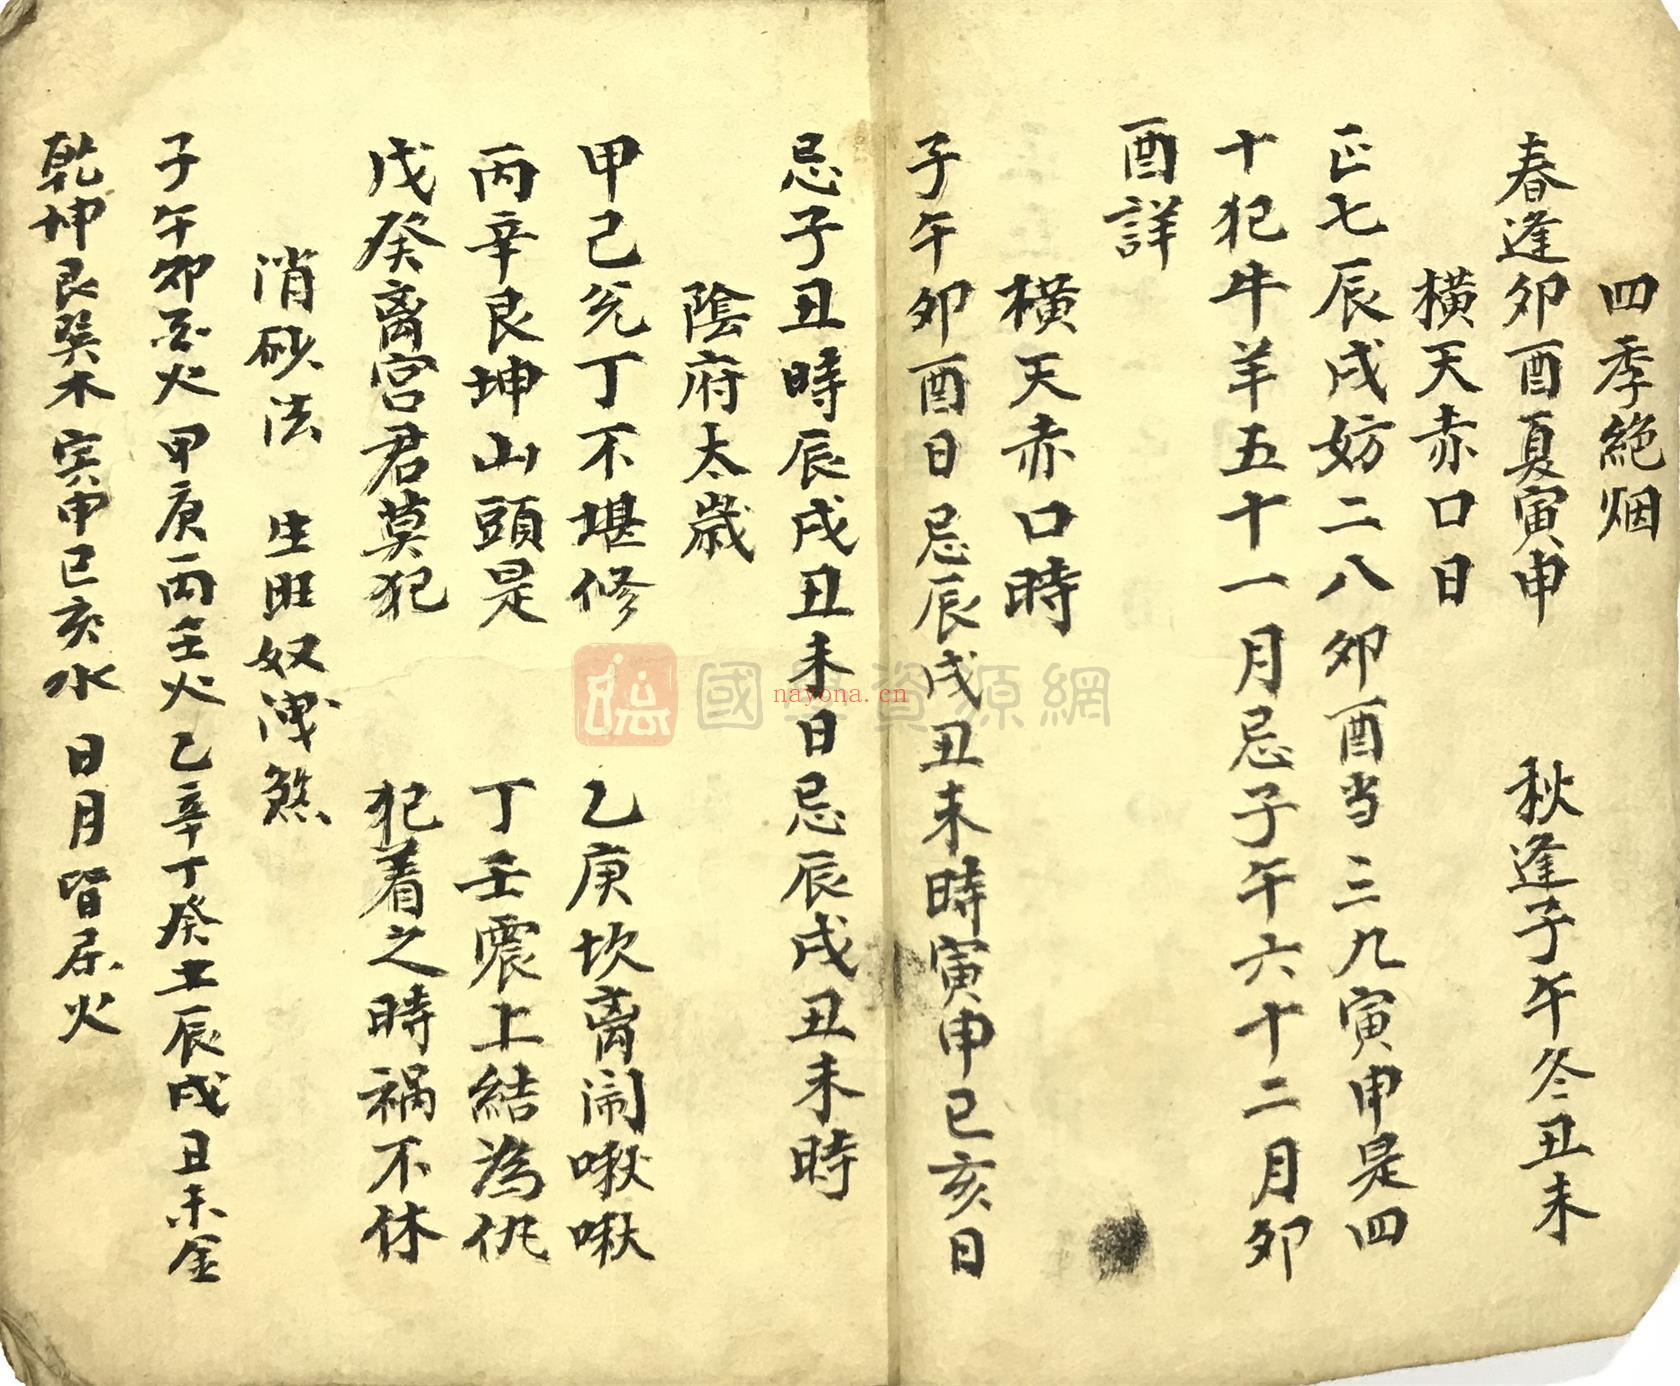 四季絶烟
春逢卯酉夏寅申　秋逢子午冬丑未
横天赤口日
正七辰戌妨二八卯酉当三九寅申是四
十犯牛羊五十一月忌子午六十二月卯
酉詳
横天赤口時
子午卯酉日忌辰戌丑未時寅申巳亥日
忌子丑時辰戌丑未日忌辰戌丑未時
陰府太歲
甲己兊丁不堪修　乙庚坎离闹啾啾
丙辛艮坤山頭是　丁壬震上結為仇
戊癸离宫君莫犯　犯着之時祸不休
消砂法　生旺奴洩煞
子午卯酉火甲庚丙壬火乙辛丁癸土辰戌丑未金
乾坤艮巽木寅申巳亥水　日月皆属火
國學資源網
nayona.cn